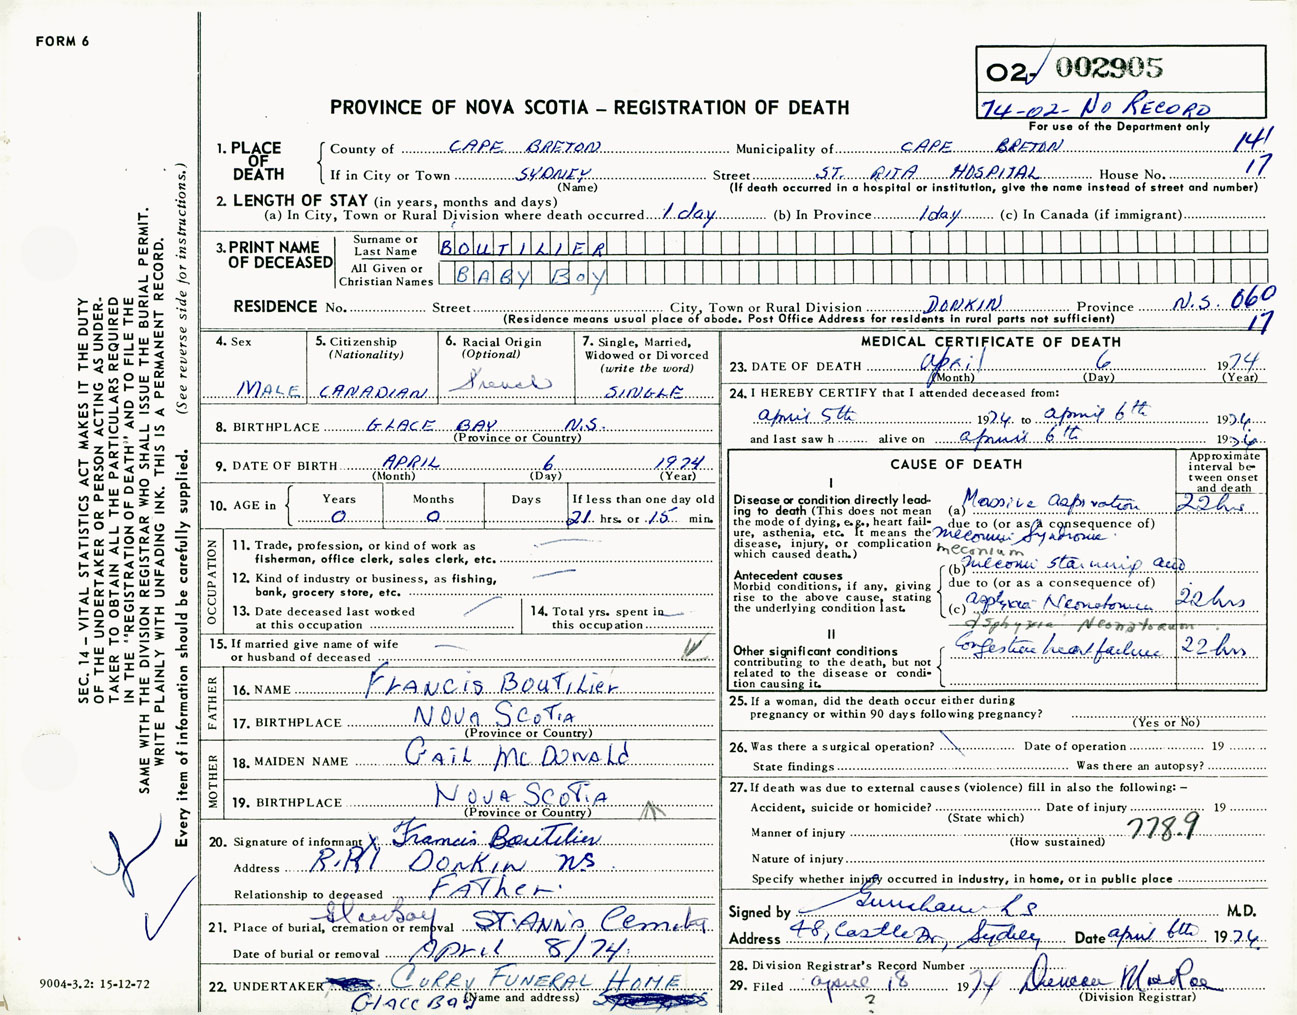 FORM 6
02- 002905
74-02- NO RECORD
For use of the Department only
PROVINCE OF NOVA SCOTIA – REGISTRATION OF DEATH
SEC. 14 – VITAL STATISTICS ACT MAKES IT THE DUTY
OF THE UNDERTAKER OR PERSON ACTING AS UNDER-
TAKER TO OBTAIN ALL THE PARTICULARS REQUIRED
IN THE "REGISTRATION OF DEATH" AND TO FILE THE
SAME WITH THE DIVISION REGISTRAR WHO SHALL ISSUE THE BURIAL PERMIT.
WRITE PLAINLY WITH UNFADING INK. THIS IS A PERMANENT RECORD.
Every item of information should be carefully supplied. (See reverse side for instructions.)
1. PLACE OF DEATH
County of CAPE BRETON Municipality of CAPE BRETON 141
If in City or Town SYDNEY Street ST. RITA HOSPITAL House No. 17
(Name) (If death occurred in a hospital or institution, give the name instead of street and number)
2. LENGTH OF STAY (in years, months and days)
(a) In City, Town or Rural Division where death occurred 1 day (b) In Province 1 day (c) In Canada (if immigrant)
3. PRINT NAME OF DECEASED
Surname or Last Name BOUTILIER
All Given or Christian Names BABY BOY
RESIDENCE No. Street City, Town or Rural Division DONKIN Province N.S. 060
(Residence means usual place of abode. Post Office Address for residents in rural parts not sufficient) 17
4. Sex MALE
5. Citizenship (Nationality) CANADIAN
6. Racial Origin (Optional) French
7. Single, Married, Widowed or Divorced (write the word) SINGLE
8. BIRTHPLACE GLACE BAY N.S.
(Province or Country)
9. DATE OF BIRTH APRIL 6 1974
(Month) (Day) (Year)
10. AGE in Years 0 Months 0 Days If less than one day old 21 hrs. or 15 min.
OCCUPATION
11. Trade, profession, or kind of work as
fisherman, office clerk, sales clerk, etc.
12. Kind of industry or business, as fishing,
bank, grocery store, etc.
13. Date deceased last worked
at this occupation
14. Total yrs. spent in
this occupation
15. If married give name of wife
or husband of deceased
FATHER
16. NAME FRANCIS BOUTILIER
17. BIRTHPLACE NOVA SCOTIA
(Province or Country)
MOTHER
18. MAIDEN NAME GAIL MC DONALD
19. BIRTHPLACE NOVA SCOTIA
(Province or Country)
20. Signature of informant X Francis Boutilier
Address R.R1 DONKIN NS
Relationship to deceased FATHER.
21. Place of burial, cremation or removal Glace Bay ST. ANN'S Cemetery
Date of burial or removal April 8/74.
22. UNDERTAKER CURRY FUNERAL HOME
GLACE BAY (Name and address)
9004-3.2: 15-12-72
MEDICAL CERTIFICATE OF DEATH
23. DATE OF DEATH April 6 1974
(Month) (Day) (Year)
24. I HEREBY CERTIFY that I attended deceased from:
april 5th 1974 to april 6th 1974
and last saw h alive on april 6th 1974
CAUSE OF DEATH
Approximate interval be-tween onset and death
I
Disease or condition directly lead-
ing to death (This does not mean
the mode of dying, e.g., heart fail-
ure, asthenia, etc. It means the
disease, injury, or complication
which caused death.)
(a) Massive aspiration 22 hrs
due to (or as a consequence of)
meconium Syndrome
meconium
Antecedent causes
Morbid conditions, if any, giving
rise to the above cause, stating
the underlying condition last.
(b) meconi staining and
due to (or as a consequence of)
(c) asphyxia Neonatorum 22 hrs
Asphyxia Neonatorum
II
Other significant conditions
contributing to the death, but not
related to the disease or condi-
tion causing it.
Congestive heart failure 22 hrs
25. If a woman, did the death occur either during
pregnancy or within 90 days following pregnancy?
(Yes or No)
26. Was there a surgical operation? Date of operation 19
State findings Was there an autopsy?
27. If death was due to external causes (violence) fill in also the following: –
Accident, suicide or homicide? Date of injury 19
(State which)
Manner of injury 778.9
(How sustained)
Nature of injury
Specify whether injury occurred in industry, in home, or in public place
Signed by M.D.
Address 48, Castle Dr, Sydney Date april 6th 1974.
28. Division Registrar's Record Number
29. Filed april 18 1974 Duncan MacRae
? (Division Registrar)